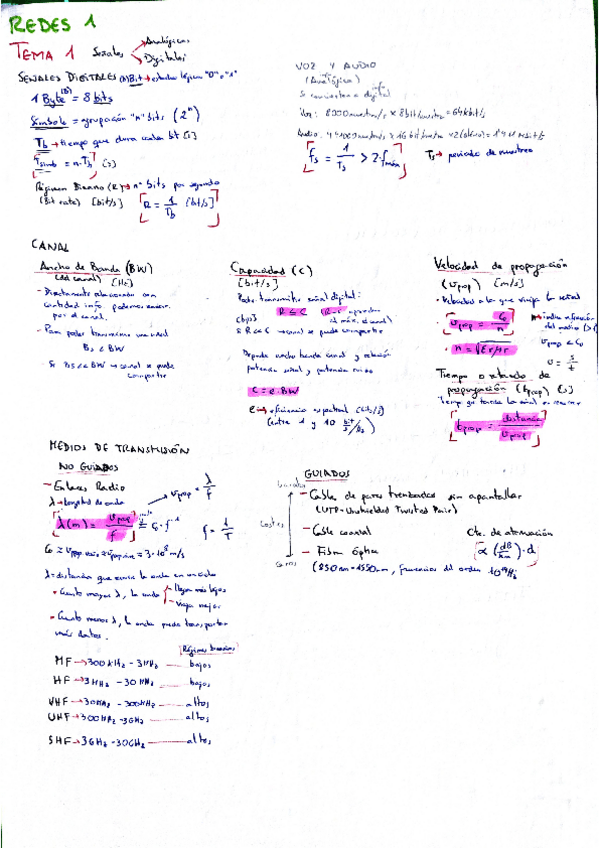 REDES 1
TEMA 1 Señales Analógicas
Digitales
SEÑALES DIGITALES Bit → estados lógicos "0" y "1"
1 Byte (B) = 8 bits
Símbolo = agrupación "n" bits (2^n)
Tb → tiempo que dura cada bit [s]
Tsimb = n·Tb [s]
Régimen Binario (R) → nº bits por segundo
(Bit rate) [bit/s] R = 1/Tb [bit/s]
VOZ Y AUDIO
(Analógica)
Se convierten a digital
Voz: 8000 muestras/s × 8 bit/muestra = 64 kbit/s
Audio: 44100 muestras/s × 16 bit/muestra × 2 (estéreo) = 1411 kbit/s
fs = 1/Ts > 2·fmáx
Ts → periodo de muestreo
CANAL
Ancho de Banda (BW)
(del canal) [Hz]
- Directamente relacionado con
cantidad info podemos enviar
por el canal.
- Para poder transmitir una señal
Bs ≤ BW
- Si Bs << BW → canal se puede
compartir
Capacidad (C)
[bit/s]
Puede transmitir señal digital:
R ≤ C
si R << C → canal se puede compartir
Depende ancho banda canal y relación
potencia señal y potencia ruido
C = e·BW
e → eficiencia espectral (bit/s/Hz)
(entre 1 y 10 bit/s/Hz)
Velocidad de propagación
(Vpop) [m/s]
- Velocidad a la que viaja la señal
Vpop = C0/n
→ índice refracción
del medio
Vpop < C0
- n = √(εr μr)
Tiempo o retardo de
propagación (tpop) [s]
Tiempo que tarda la señal en recorrer
tpop = distancia/Vpop
MEDIOS DE TRANSMISIÓN
NO GUIADOS
- Enlaces Radio
λ → longitud de onda
Vpop = λ/T
λ(m) = Vpop/f = C0·f^-1
f = 1/T
C0 ≈ Vpop vacío ≈ Vpop aire = 3·10^8 m/s
λ = distancia que recorre la onda en un ciclo
- Cuanto mayor λ, la onda llega más lejos
viaja mejor
- Cuanto menos λ, la onda puede transportar
más datos.
Régimen binario
MF → 300 kHz - 3 MHz — bajos
HF → 3 MHz - 30 MHz — bajos
VHF → 30 MHz - 300 MHz — altos
UHF → 300 MHz - 3 GHz — altos
SHF → 3 GHz - 30 GHz — altos
GUIADOS
barato
costes
caros
- Cable de pares trenzados sin apantallar
(UTP - Unshielded Twisted Pair)
- Cable coaxial
- Fibra óptica
(850 nm - 1550 nm, frecuencias del orden 10^14 Hz)
Cte. de atenuación
α (dB/km)·d